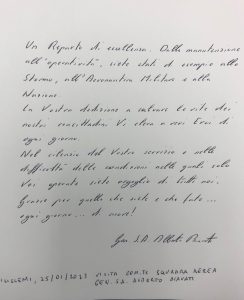 Un Reparto di eccellenza. Dalla manutenzione
all'operatività, siete stati di esempio allo
Stormo, all'Aeronautica Militare e alla
Nazione.
La Vostra dedizione a salvare le vite dei
nostri concittadini Vi eleva a veri Eroi di
ogni giorno.
Nel silenzio del Vostro servizio e nelle
difficoltà delle condizioni nelle quali
Voi operate siete orgoglio di tutti noi.
Grazie per quello che siete e che fate...
ogni giorno... di cuore!
Gen. S.A.
25/01/2023 VISITA COM.TE SQUADRA AEREA
GEN. S.A. ALBERTO BIAVATI